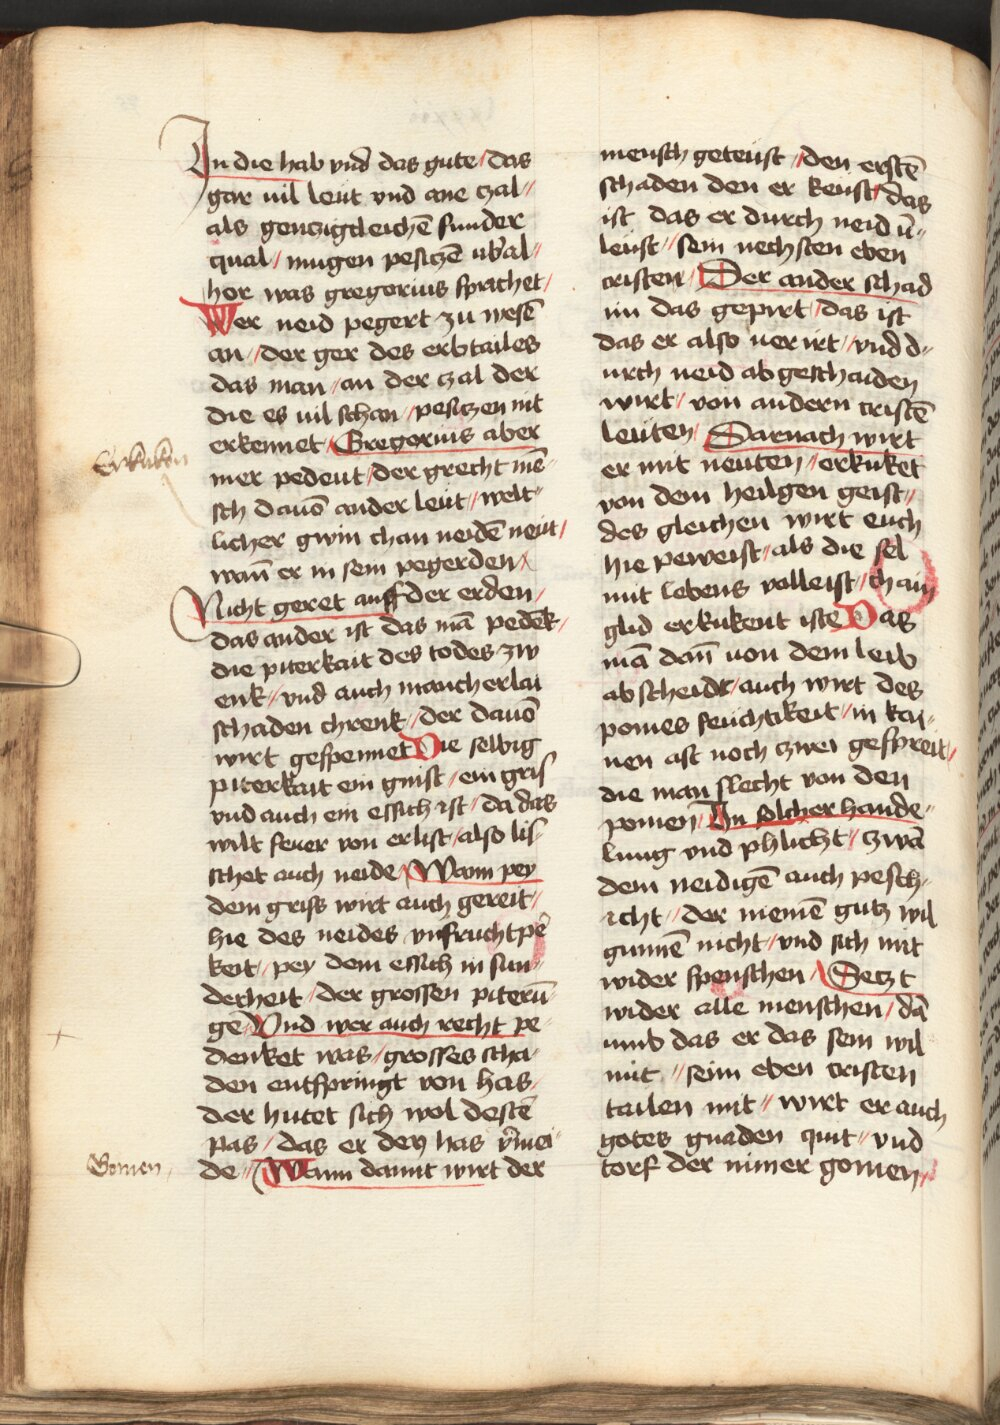 In die hab vnd das gute / das
gar uil leut vnd ane czal //
als genczigkleichē sunder
qual / mugen pesiczē ub'al //
hor was gregorius sprachet /
Wer neid pegert zu wesē
an // der ger des erbtailes
das man / an der czal der
die es uil schan / pesiczen nit
erkennet / Gregorius aber
mer pedeut / der grecht mē
sch dauō ander leut // welt //
licher gwin chan neidē neut /
wañ er in sein pegerden /
Nicht geret auff der erden /
das ander ist das mā pedēk /
die piterkait des todes zw
enk / vnd auch mancherlai
schaden chrenk / der dauō
wirt gespennet Die selbig
piterkait ein gnist / ein gris
vnd auch ein essich ist / da das
wilt feuer von erlist / also lis /
schet auch neide / Wann pey
dem griss wirt auch gereit /
hie des neides vnfruchtpē
keit / pey dem essich in sun //
derheit / der grossen piterū
gē / Vnd wer auch recht pe
denket was / grosses scha /
den entspringt von has /
der hutet sich wol destē
pas / das er den has v̄mei
de // Wann damit wirt der
Erkukken
Gomen
mensch geteust // den erstē
schaden den er kenst / das
ist das er durch neid ū //
leust // sein nechsten eben
cristen / Der ander schad
im das gepirt / das ist
das er also uerirt // vnd d //
urch neid abgeschaiden
wirt / von andern cristē
leuten / Darnach wirt
er mit neuten // erkuket
von dem heiligen geist //
des gleichen wirt euch
hie peweist / als die sel
mit lebens volleist / chain
glid erkukent iste Das
mā dañ uon dem leib
abscheidt / auch wirt des
pomes feuchtikeit // in kai /
nen ast noch czwei gespreit //
die man slecht von den
pomen / In solcher hande //
lung vnd phlicht // zwā
dem neidigē auch pesch /
icht // der niemē gutz wil
gunnē nicht / vnd sich mit
wider spenschen / Setzt
wider alle menschen / dā
umb das er das sein wil
nit // seim eben cristen
tailen mit // wirt er auch
gotes gnaden quit // vnd
torf der nimer gomen //